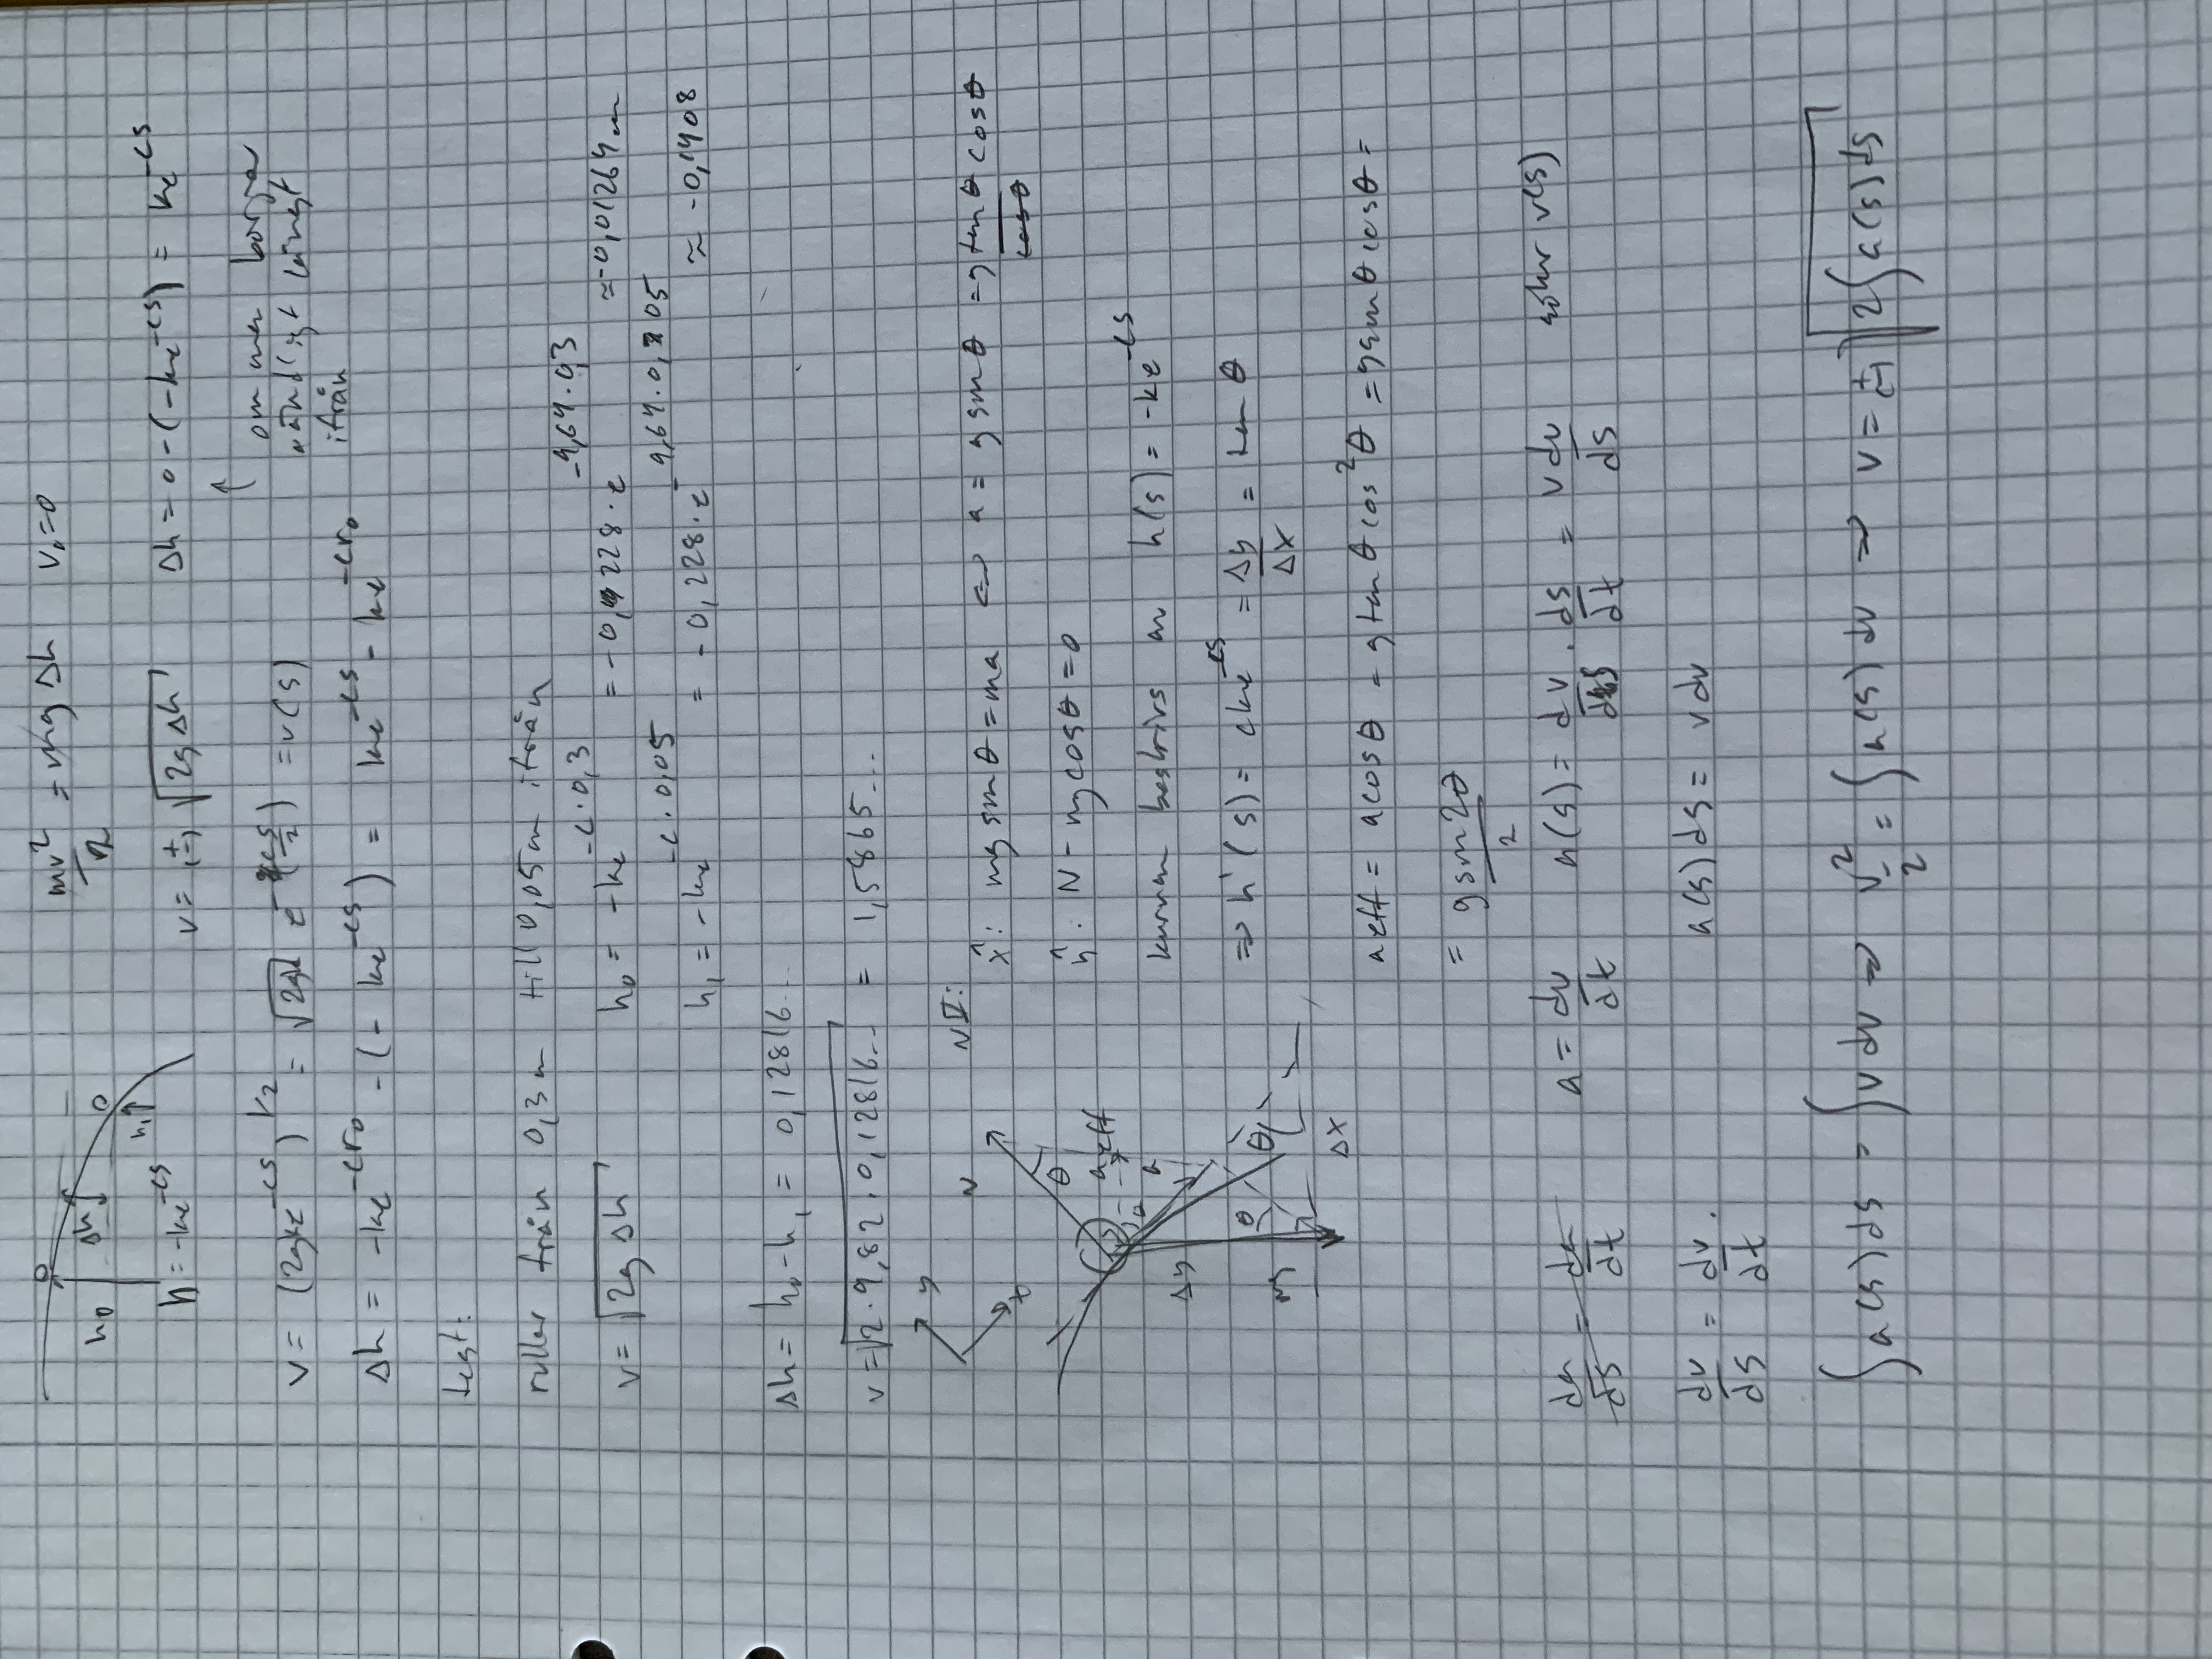 mv²/2 = mg Δh   v₀=0
h₀   Δh   h₁
h = -ke^(-cs)   v = (±) √(2g Δh)   Δh = 0-(-ke^(-cs)) = ke^(-cs)
↑ om man börjar
oändligt långt
ifrån
v = (2gke^(-cs))^(1/2) = √(2gk) e^(-(cs/2)) = v(s)
Δh = -ke^(-cr₀) - (-ke^(-cs)) = ke^(-cs) - ke^(-cr₀)
test:
rullar från 0,3m till 0,05m ifrån
v = √(2g Δh)   h₀ = -ke^(-c·0,3) = -0,228·e^(-9,64·0,3) ≈ -0,01264m
h₁ = -ke^(-c·0,05) = -0,228·e^(-9,64·0,05) ≈ -0,1408
Δh = h₀-h₁ = 0,12816...
v = √(2·9,82·0,12816...) = 1,5865...
y   x   N   θ   NII:
x̂: mg sinθ = ma ⇔ a = g sinθ = g tanθ cosθ
N - mg cosθ = 0
a eff   a
kurvan beskrivs av h(s) = -ke^(-cs)
Δy   mg   θ   θ   Δx
⇒ h'(s) = cke^(-cs) = Δy/Δx = tan θ
a eff = a cosθ = g tanθ cos²θ = g sinθ cosθ =
= g sin2θ/2
da/ds = da/dt   a = dv/dt   a(s) = dv/ds · ds/dt = v dv/ds   söker v(s)
dv/ds = dv/dt ·   a(s) ds = v dv
∫a(s) ds = ∫v dv ⇒ v²/2 = ∫a(s) dv ⇒ v = (±) √(2∫a(s) ds)